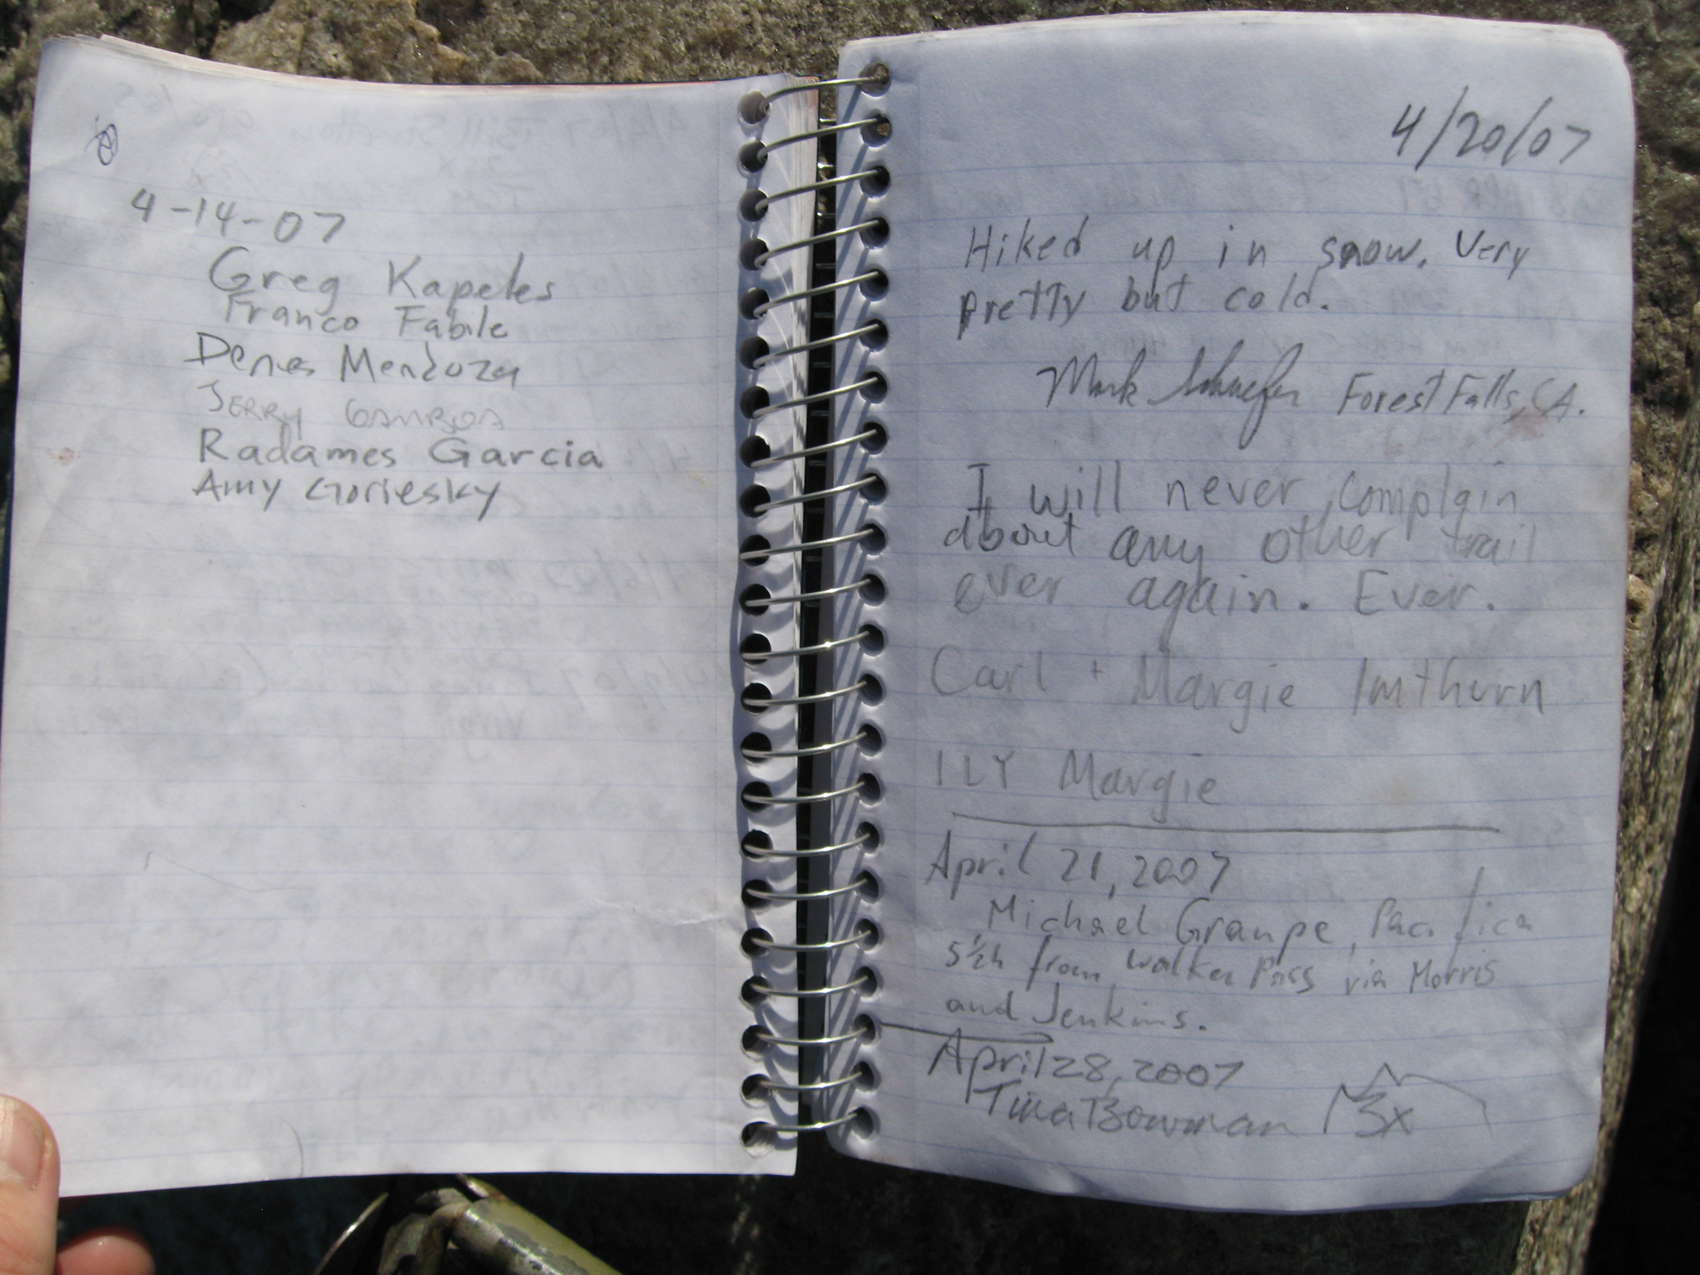 4-14-07
Greg Kapeles
Franco Fabile
Denes Mendoza
JERRY GAMBOA
Radames Garcia
Amy Goriesky
4/20/07
Hiked up in snow. Very
pretty but cold.
Mark Schaefer Forest Falls, CA.
I will never complain
about any other trail
ever again. Ever.
Carl + Margie Imthurn
ILY Margie
April 21, 2007
Michael Graupe, Pacifica
5½h from Walker Pass via Morris
and Jenkins.
April 28, 2007
Tina Bowman 3x